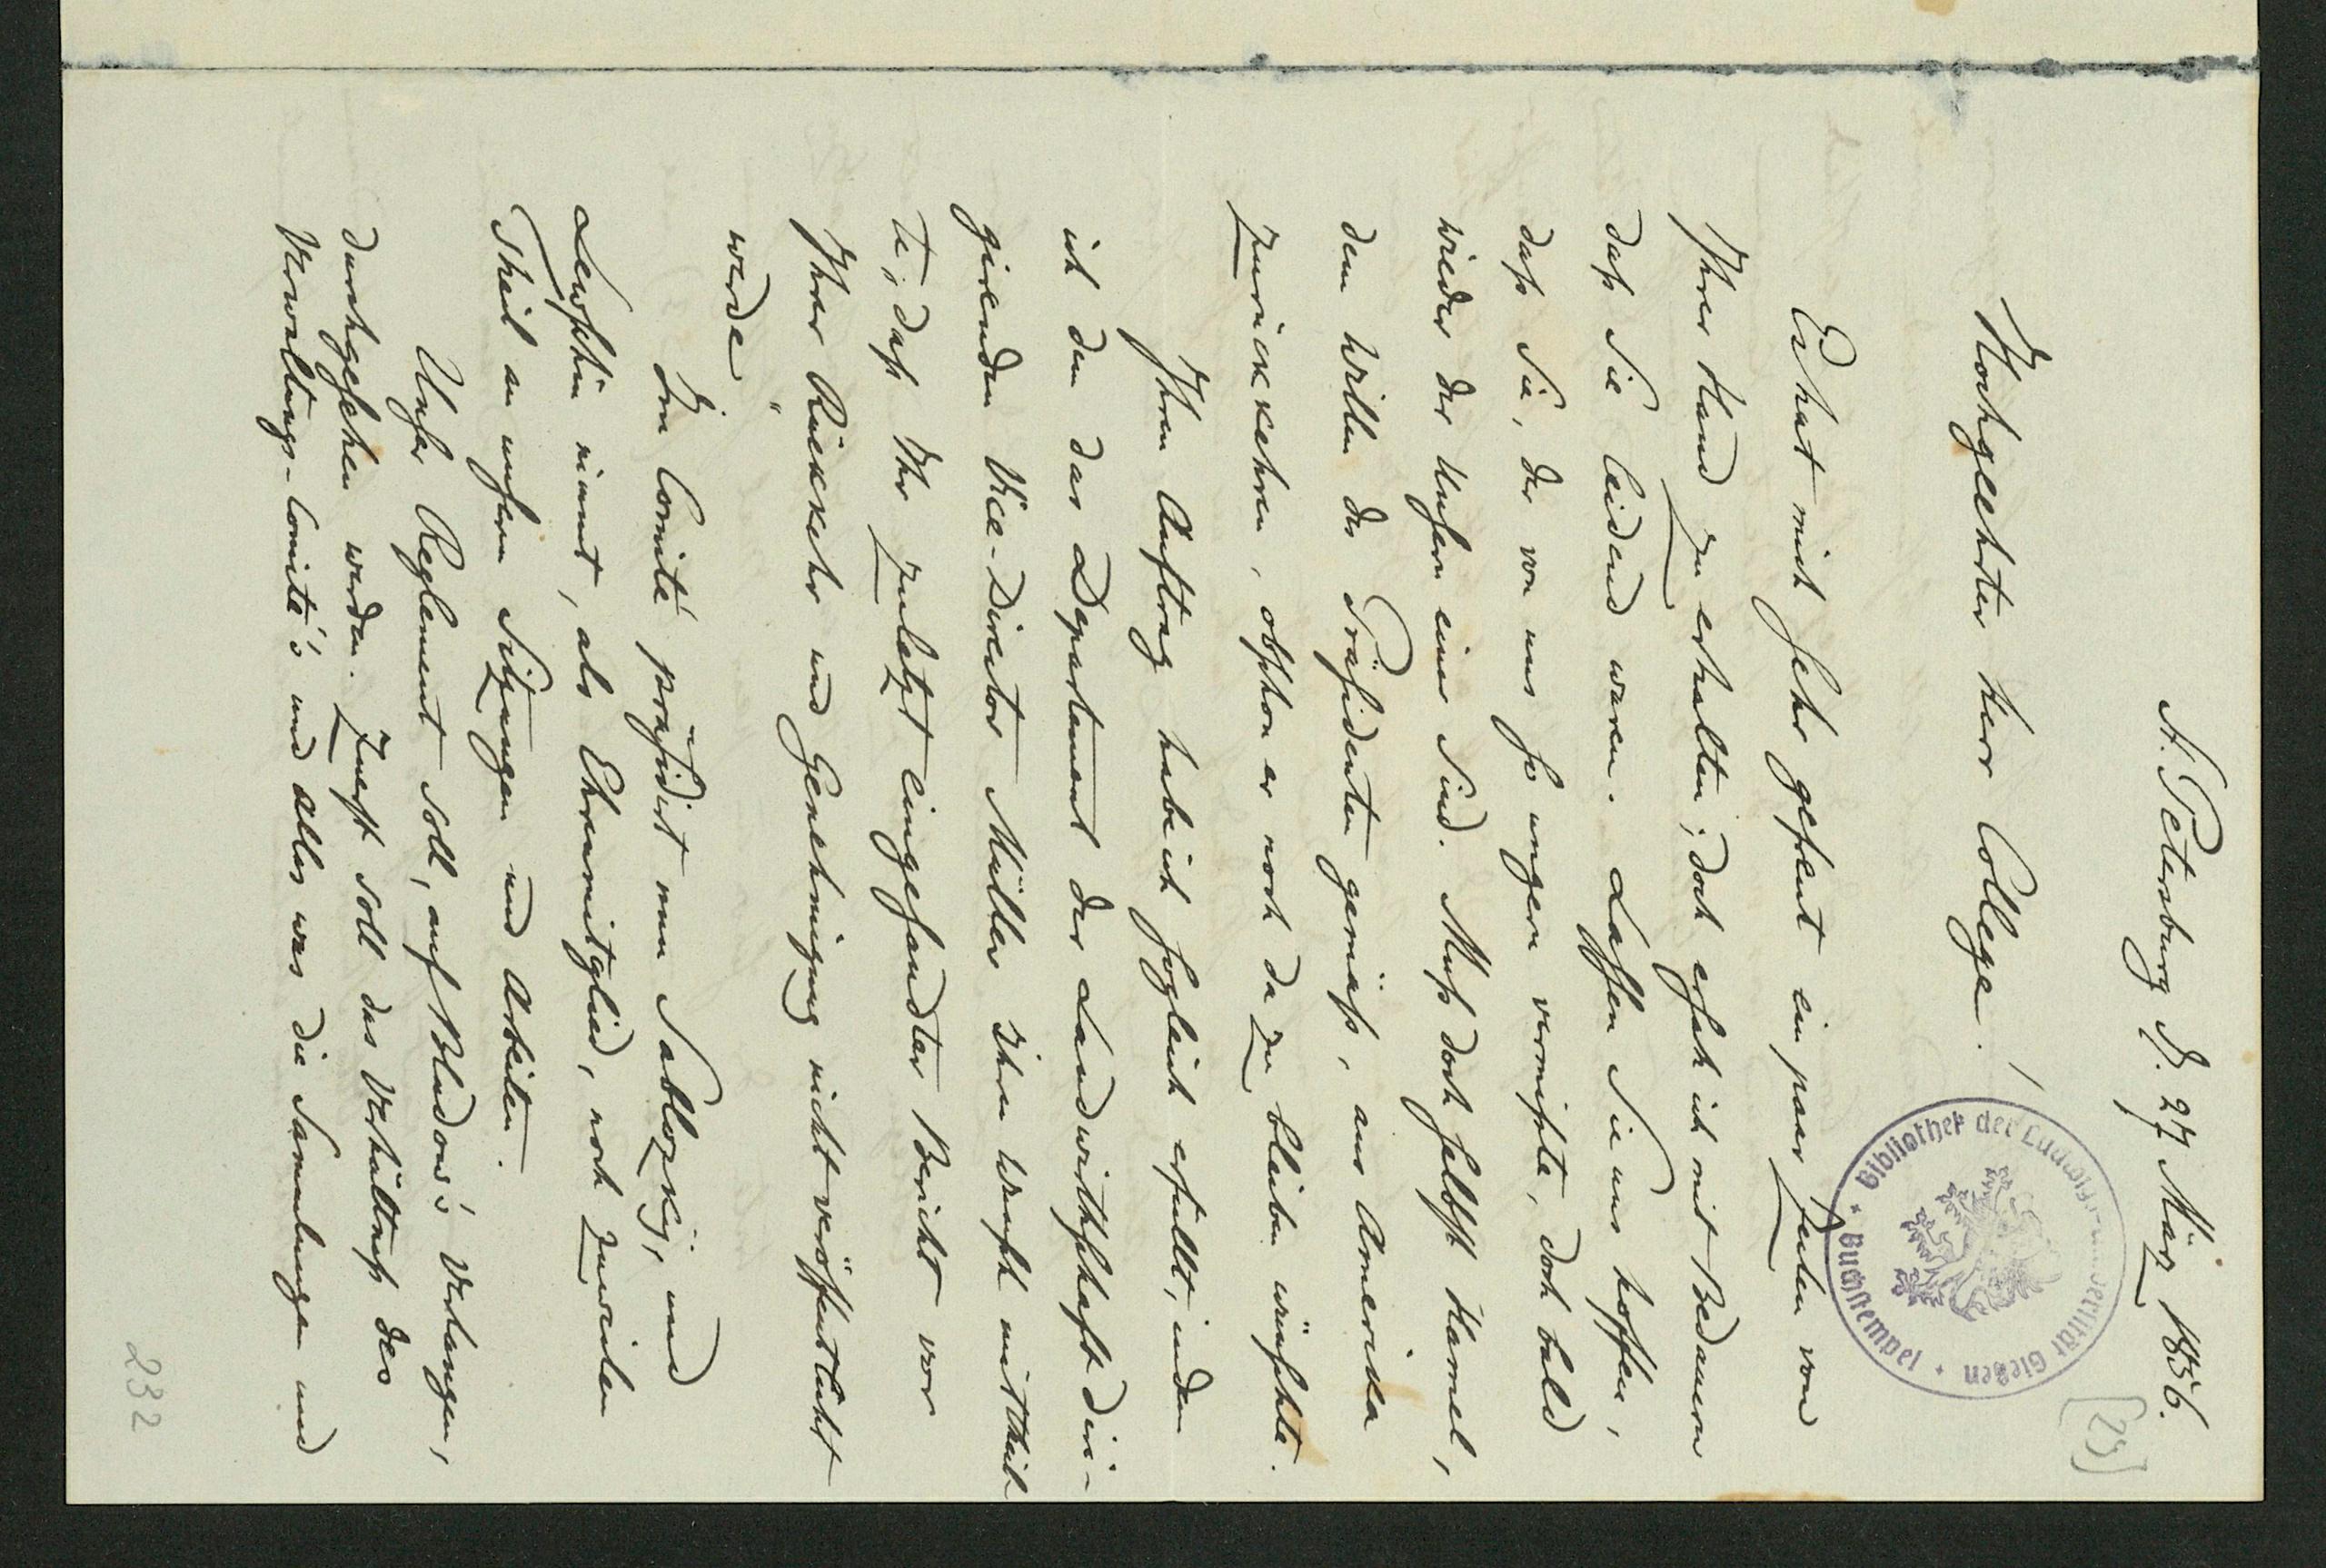 St. Petersburg d. 27 März 1856.
[25]
Hochgeehrter Herr College!
Bibliothek der Ludwigs-Universität Gießen * Buchstempel *
Es hat mich sehr gefreut ein paar Zeilen von
Ihrer Hand zu erhalten; doch ersah ich mit Bedauern
daß Sie leidend waren. Lassen Sie uns hoffen,
daß Sie, der von uns so ungern vermißte, doch bald
wieder der Unsern einer sind. Muß doch selbst Hamel,
dem Willen des Präsidenten gemäß, aus America
zurückkehren, obschon er noch da zu bleiben wünschte.
Ihren Auftrag habe ich sogleich erfüllt, indem
ich dem das Departement der Landwirthschaft diri-
girenden Vice-Director Müller Ihren Wunsch mittheil
te, daß Ihr zuletzt eingesandter Bericht vor
Ihrer Rückkehr und Genehmigung nicht veröffentlicht
werde.
Im Comité präsidirt nun Sablozkij, und
Lewschin nimmt, als Ehrenmitglied, noch zuweilen
Theil an unsern Sitzungen und Arbeiten.
Unser Reglement soll, auf Bludow's Verlangen,
durchgesehen werden. Zuerst soll das Verhältniß des
Verwaltungs-Comité's und alles was die Sammlungen und
232